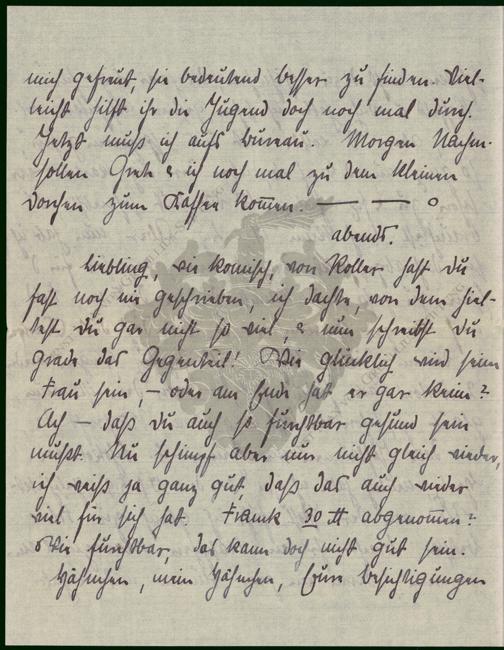 mich gefreut, sie bedeutend besser zu finden. Viel-
leicht hilft ihr die Jugend doch noch mal durch.
Jetzt muß ich aufs bureau. Morgen Nachm.
sollen Grete & ich noch mal zu dem kleinen
Dorchen zum Kaffee kom̅en. — — o
abends.
Liebling, wie komisch, von Koller hast du
fast noch nie geschrieben, ich dachte, von dem hiel-
test du gar nicht so viel, & nun schreibst du
grade das Gegenteil! Wie glücklich wird seine
Frau sein, – oder am Ende hat er gar keine?
Ach – daß du auch so furchtbar gesund sein
mußt. Nu schimpf aber nur nicht gleich wieder,
ich weiß ja ganz gut, daß das auch wieder
viel für sich hat. Frank 30 ℔ abgenom̅en?
Wie furchtbar, das kann doch nicht gut sein.
mein Eure Besichtigungen